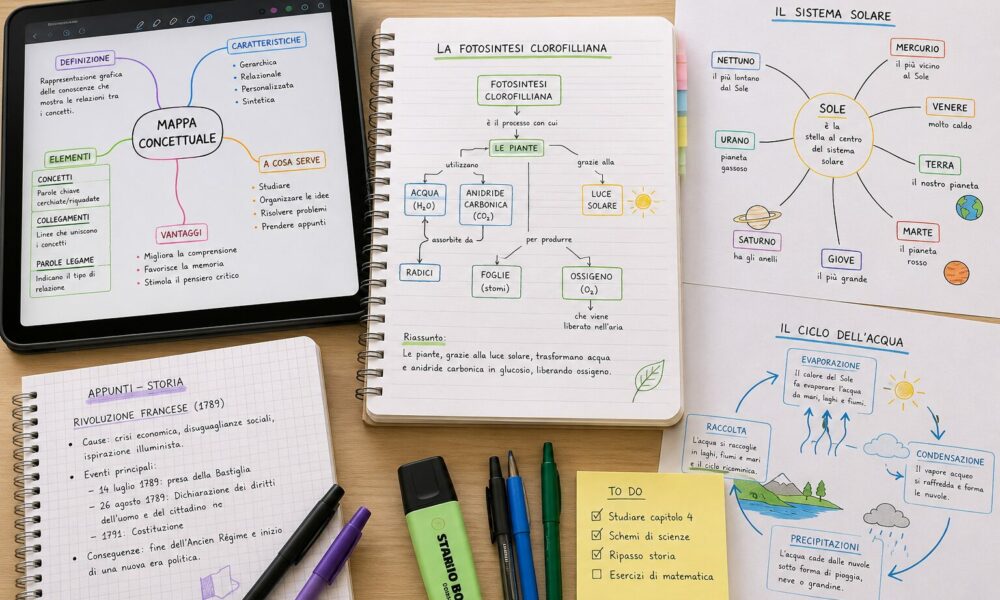 MAPPA
CONCETTUALE
DEFINIZIONE
Rappresentazione grafica
delle conoscenze che
mostra le relazioni tra
i concetti.
CARATTERISTICHE
• Gerarchica
• Relazionale
• Personalizzata
• Sintetica
ELEMENTI
CONCETTI
Parole chiave
cerchiate/riquadate
COLLEGAMENTI
Linee che uniscono
i concetti
PAROLE LEGAME
Indicano il tipo di
relazione
A COSA SERVE
• Studiare
• Organizzare le idee
• Risolvere problemi
• Prendere appunti
VANTAGGI
• Migliora la comprensione
• Favorisce la memoria
• Stimola il pensiero critico
LA FOTOSINTESI CLOROFILLIANA
FOTOSINTESI
CLOROFILLIANA
è il processo con cui
LE PIANTE
utilizzano
grazie alla
ACQUA
(H₂O)
ANIDRIDE
CARBONICA
(CO₂)
LUCE
SOLARE
assorbite da
per produrre
RADICI
FOGLIE
(stomi)
OSSIGENO
(O₂)
che viene
liberato nell'aria
Riassunto:
Le piante, grazie alla luce solare, trasformano acqua
e anidride carbonica in glucosio, liberando ossigeno.
IL SISTEMA SOLARE
SOLE
è la
stella al centro
del sistema
solare
MERCURIO
il più vicino
al Sole
VENERE
molto caldo
TERRA
il nostro pianeta
MARTE
il pianeta
rosso
GIOVE
il più grande
SATURNO
ha gli anelli
URANO
pianeta
gassoso
NETTUNO
il più lontano
dal Sole
APPUNTI – STORIA
RIVOLUZIONE FRANCESE (1789)
• Cause: crisi economica, disuguaglianze sociali,
ispirazione illuminista.
• Eventi principali:
– 14 luglio 1789: presa della Bastiglia
– 26 agosto 1789: Dichiarazione dei diritti
dell'uomo e del cittadino ne
– 1791: Costituzione
• Conseguenze: fine dell'Ancien Régime e inizio
di una nuova era politica.
STABIIO BO
TO DO
☑ Studiare capitolo 4
☑ Schemi di scienze
☑ Ripasso storia
☐ Esercizi di matematica
IL CICLO DELL'ACQUA
EVAPORAZIONE
Il calore del Sole
fa evaporare l'acqua
da mari, laghi e fiumi.
CONDENSAZIONE
Il vapore acqueo
si raffredda e forma
le nuvole.
PRECIPITAZIONI
L'acqua cade dalle nuvole
sotto forma di pioggia,
neve o grandine.
RACCOLTA
L'acqua si raccoglie
in laghi, fiumi e mari
e il ciclo ricomincia.